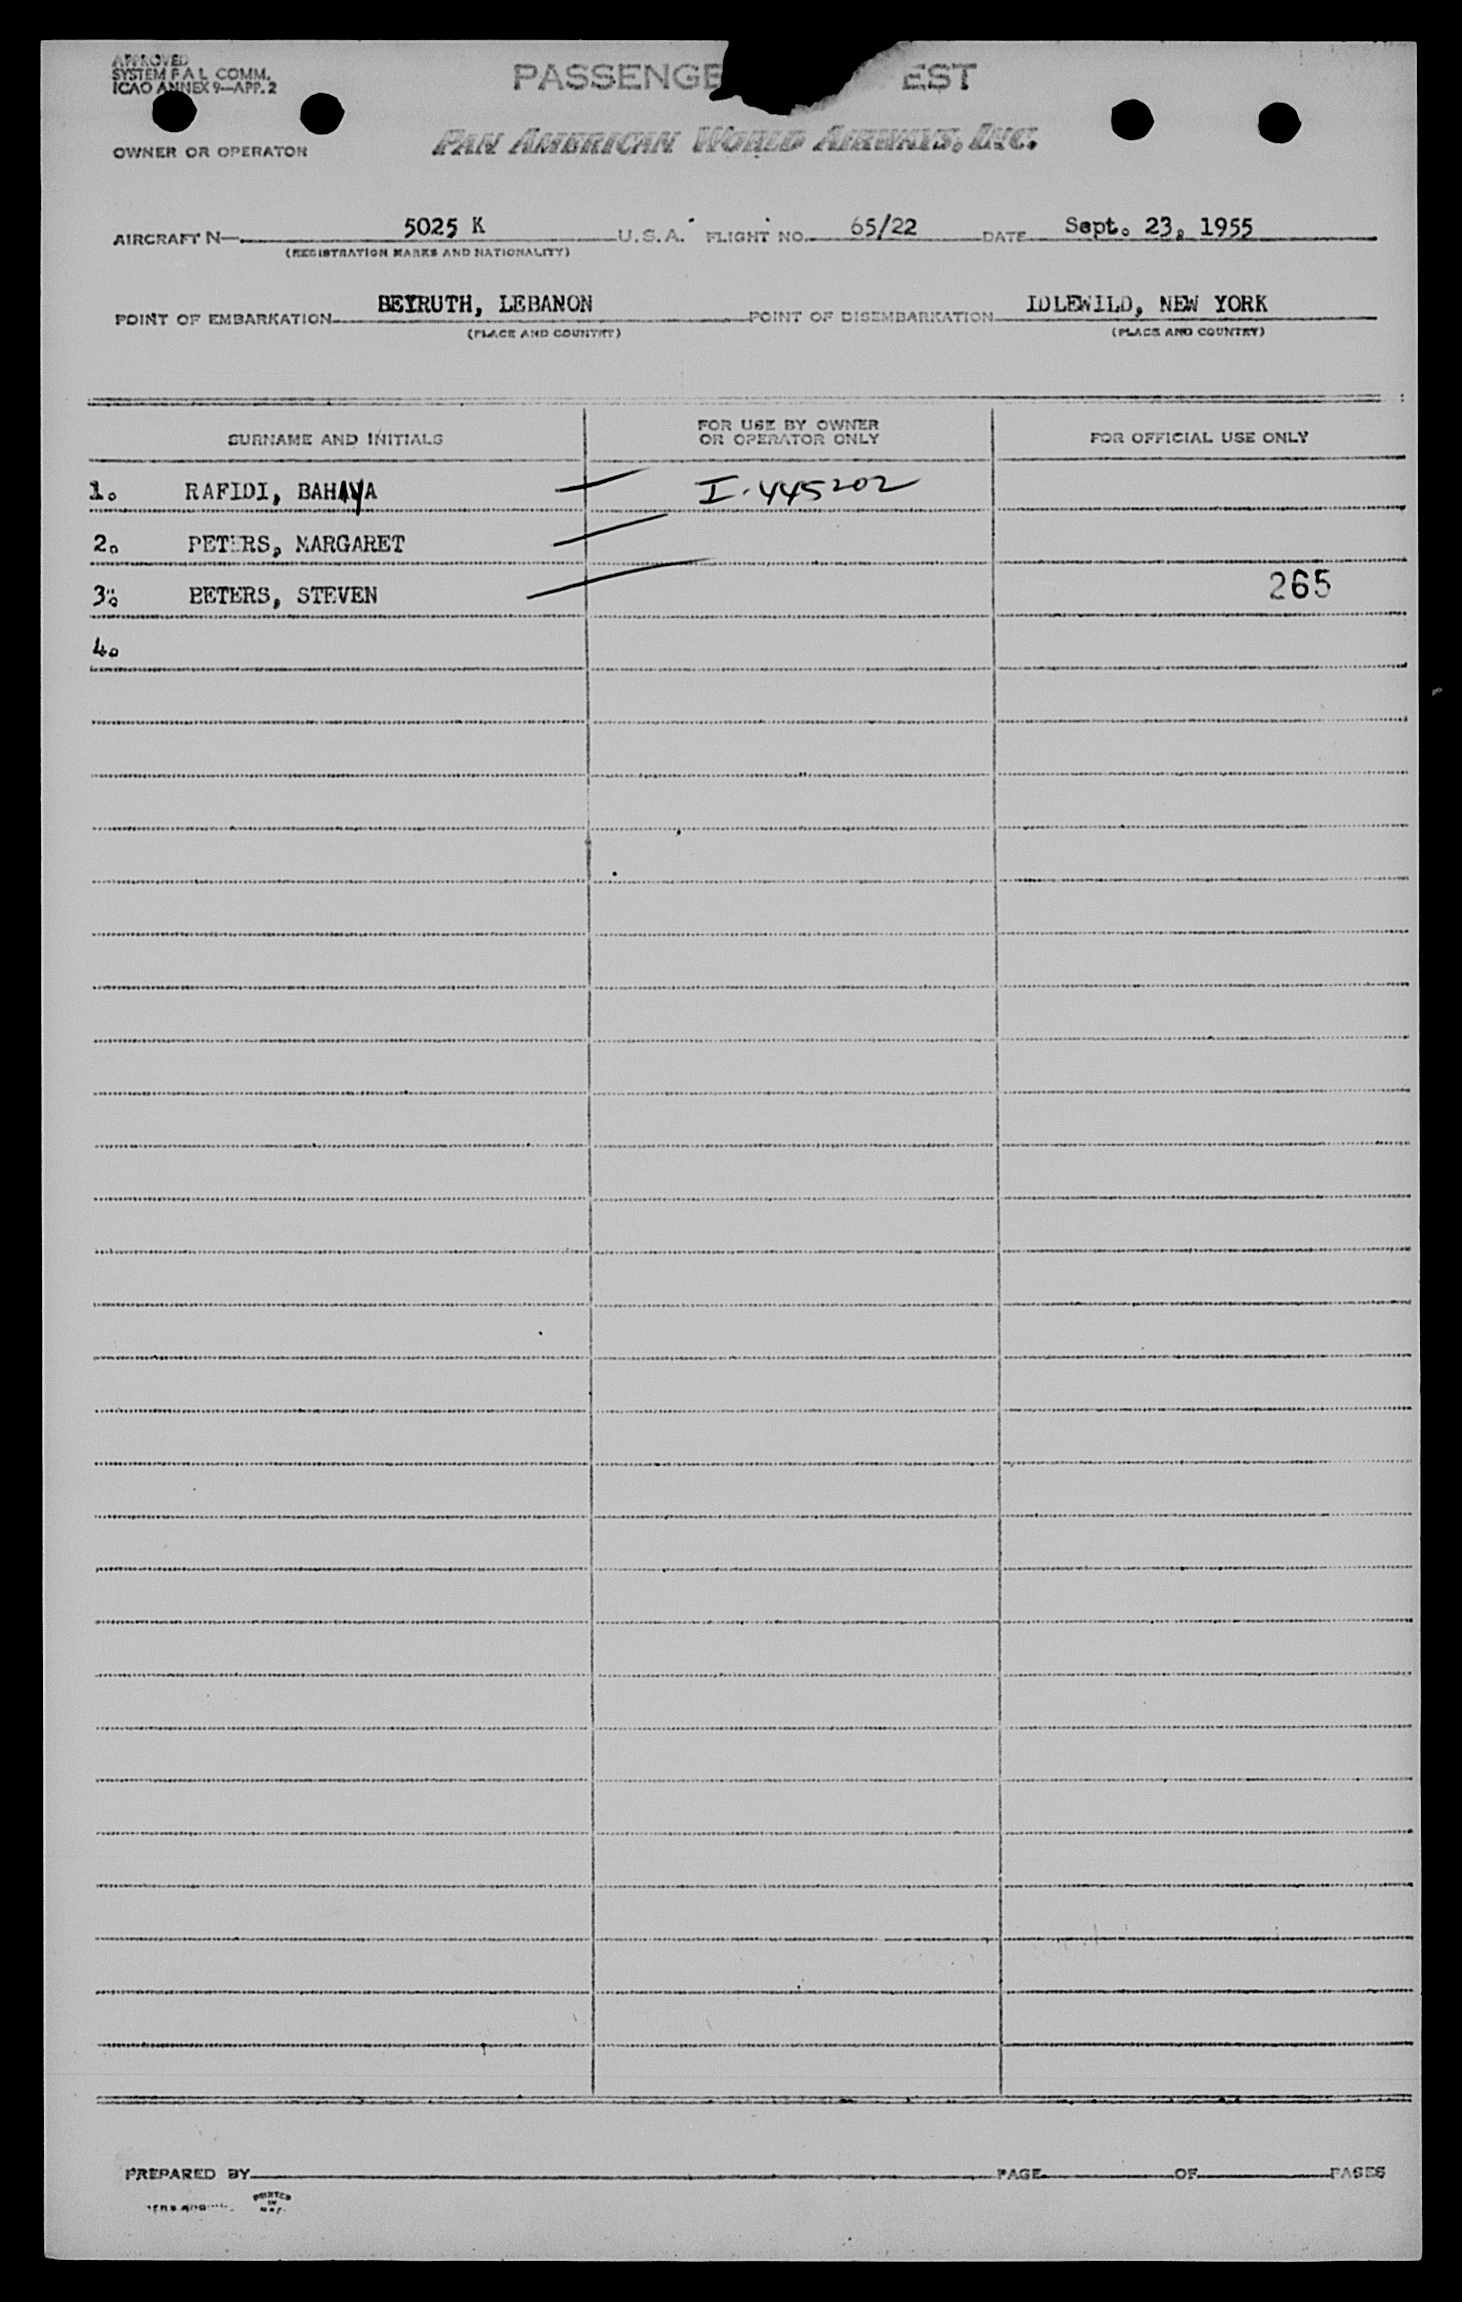 APPROVED
SYSTEM F A L COMM.
ICAO ANNEX 9—APP. 2
PASSENGE EST
OWNER OR OPERATOR PAN AMERICAN WORLD AIRWAYS, INC.
AIRCRAFT N— 5025 K U.S.A. FLIGHT NO. 65/22 DATE Sept. 23, 1955
(REGISTRATION MARKS AND NATIONALITY)
POINT OF EMBARKATION BEYRUTH, LEBANON POINT OF DISEMBARKATION IDLEWILD, NEW YORK
(PLACE AND COUNTRY) (PLACE AND COUNTRY)
SURNAME AND INITIALS FOR USE BY OWNER OR OPERATOR ONLY FOR OFFICIAL USE ONLY
1. RAFIDI, BAHAYA I-445202
2. PETERS, MARGARET
3. PETERS, STEVEN 265
4.
PREPARED BY PAGE OF PAGES
PRINTED
IN